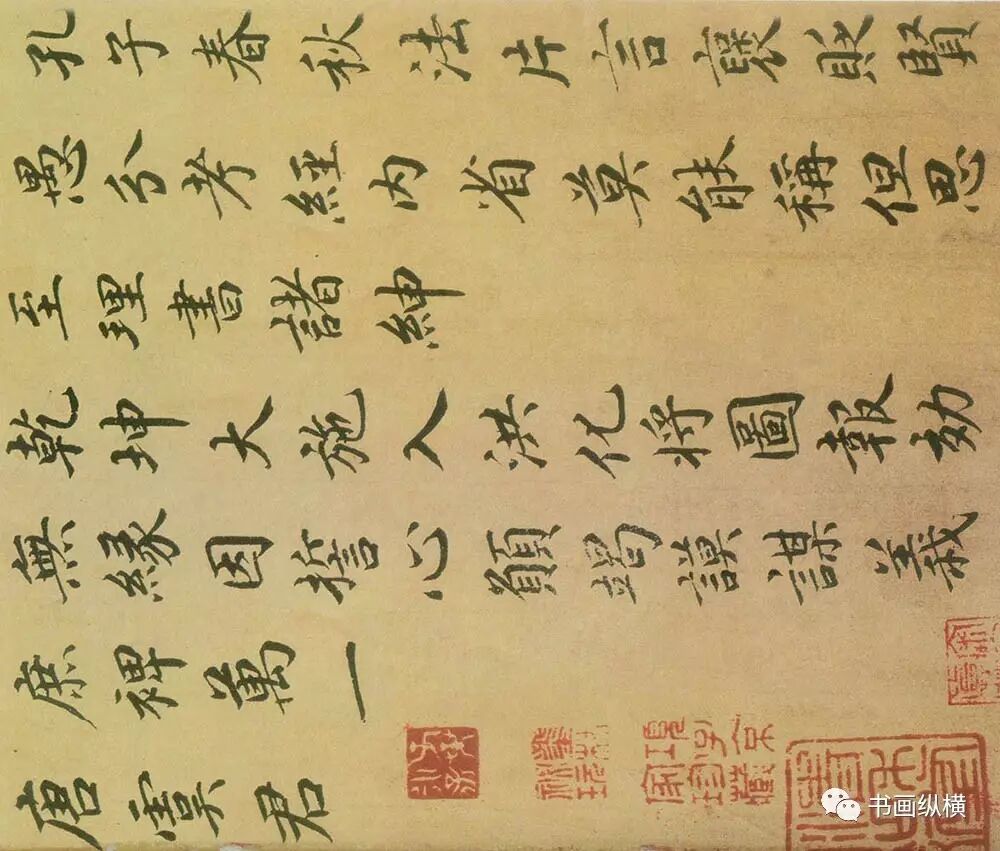 孔子春秋法片言褒貶賢
愚分考經内省莫能稱但思
至理書諸紳
乾坤大施入洪化將圖報効
無緣因誓心願竭謨謀義
庶裨萬一
唐虞君
书画纵横